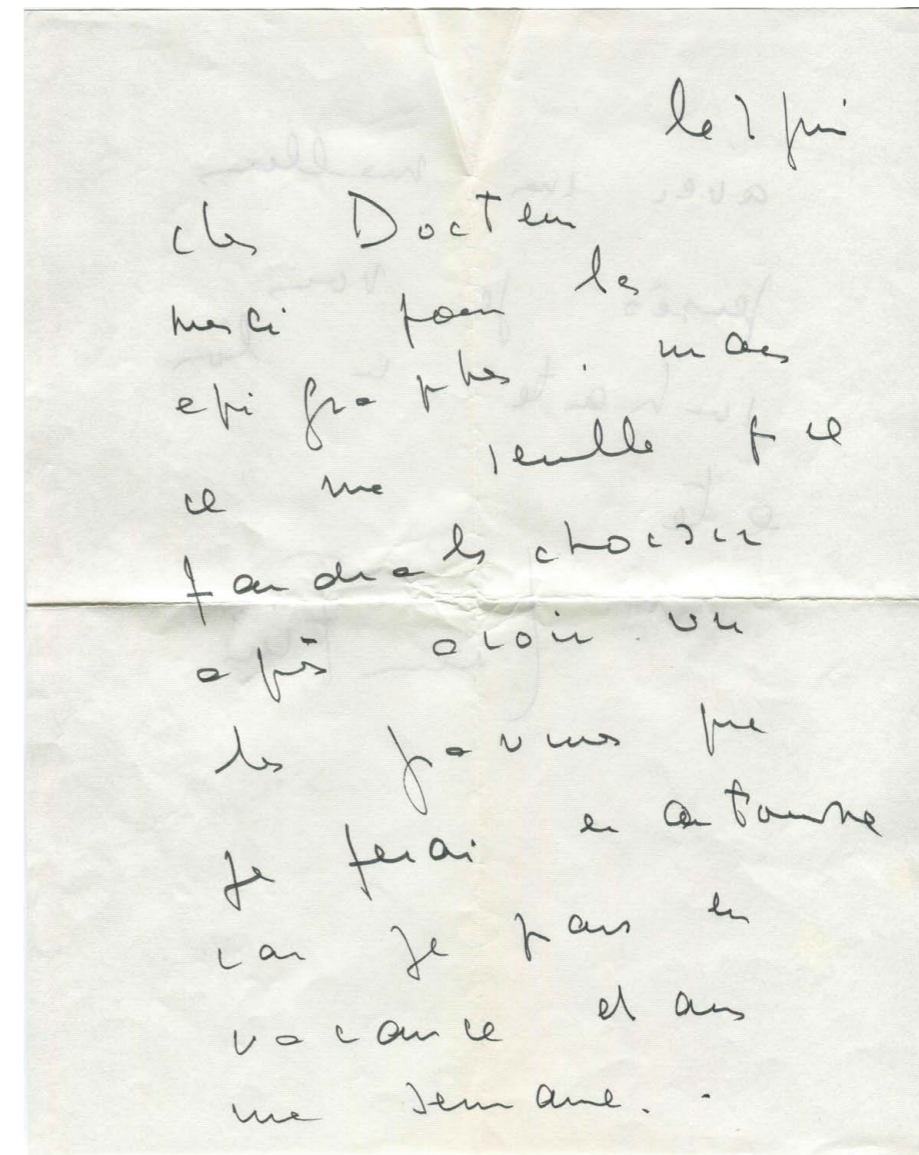 le juin
cher Docteur
merci pour les
epigraphes. mais
il me semble qu'il
faudra les choisir
après avoir vu
les gravures que
je ferai en automne
car je pars en
vacance dans
une semaine.